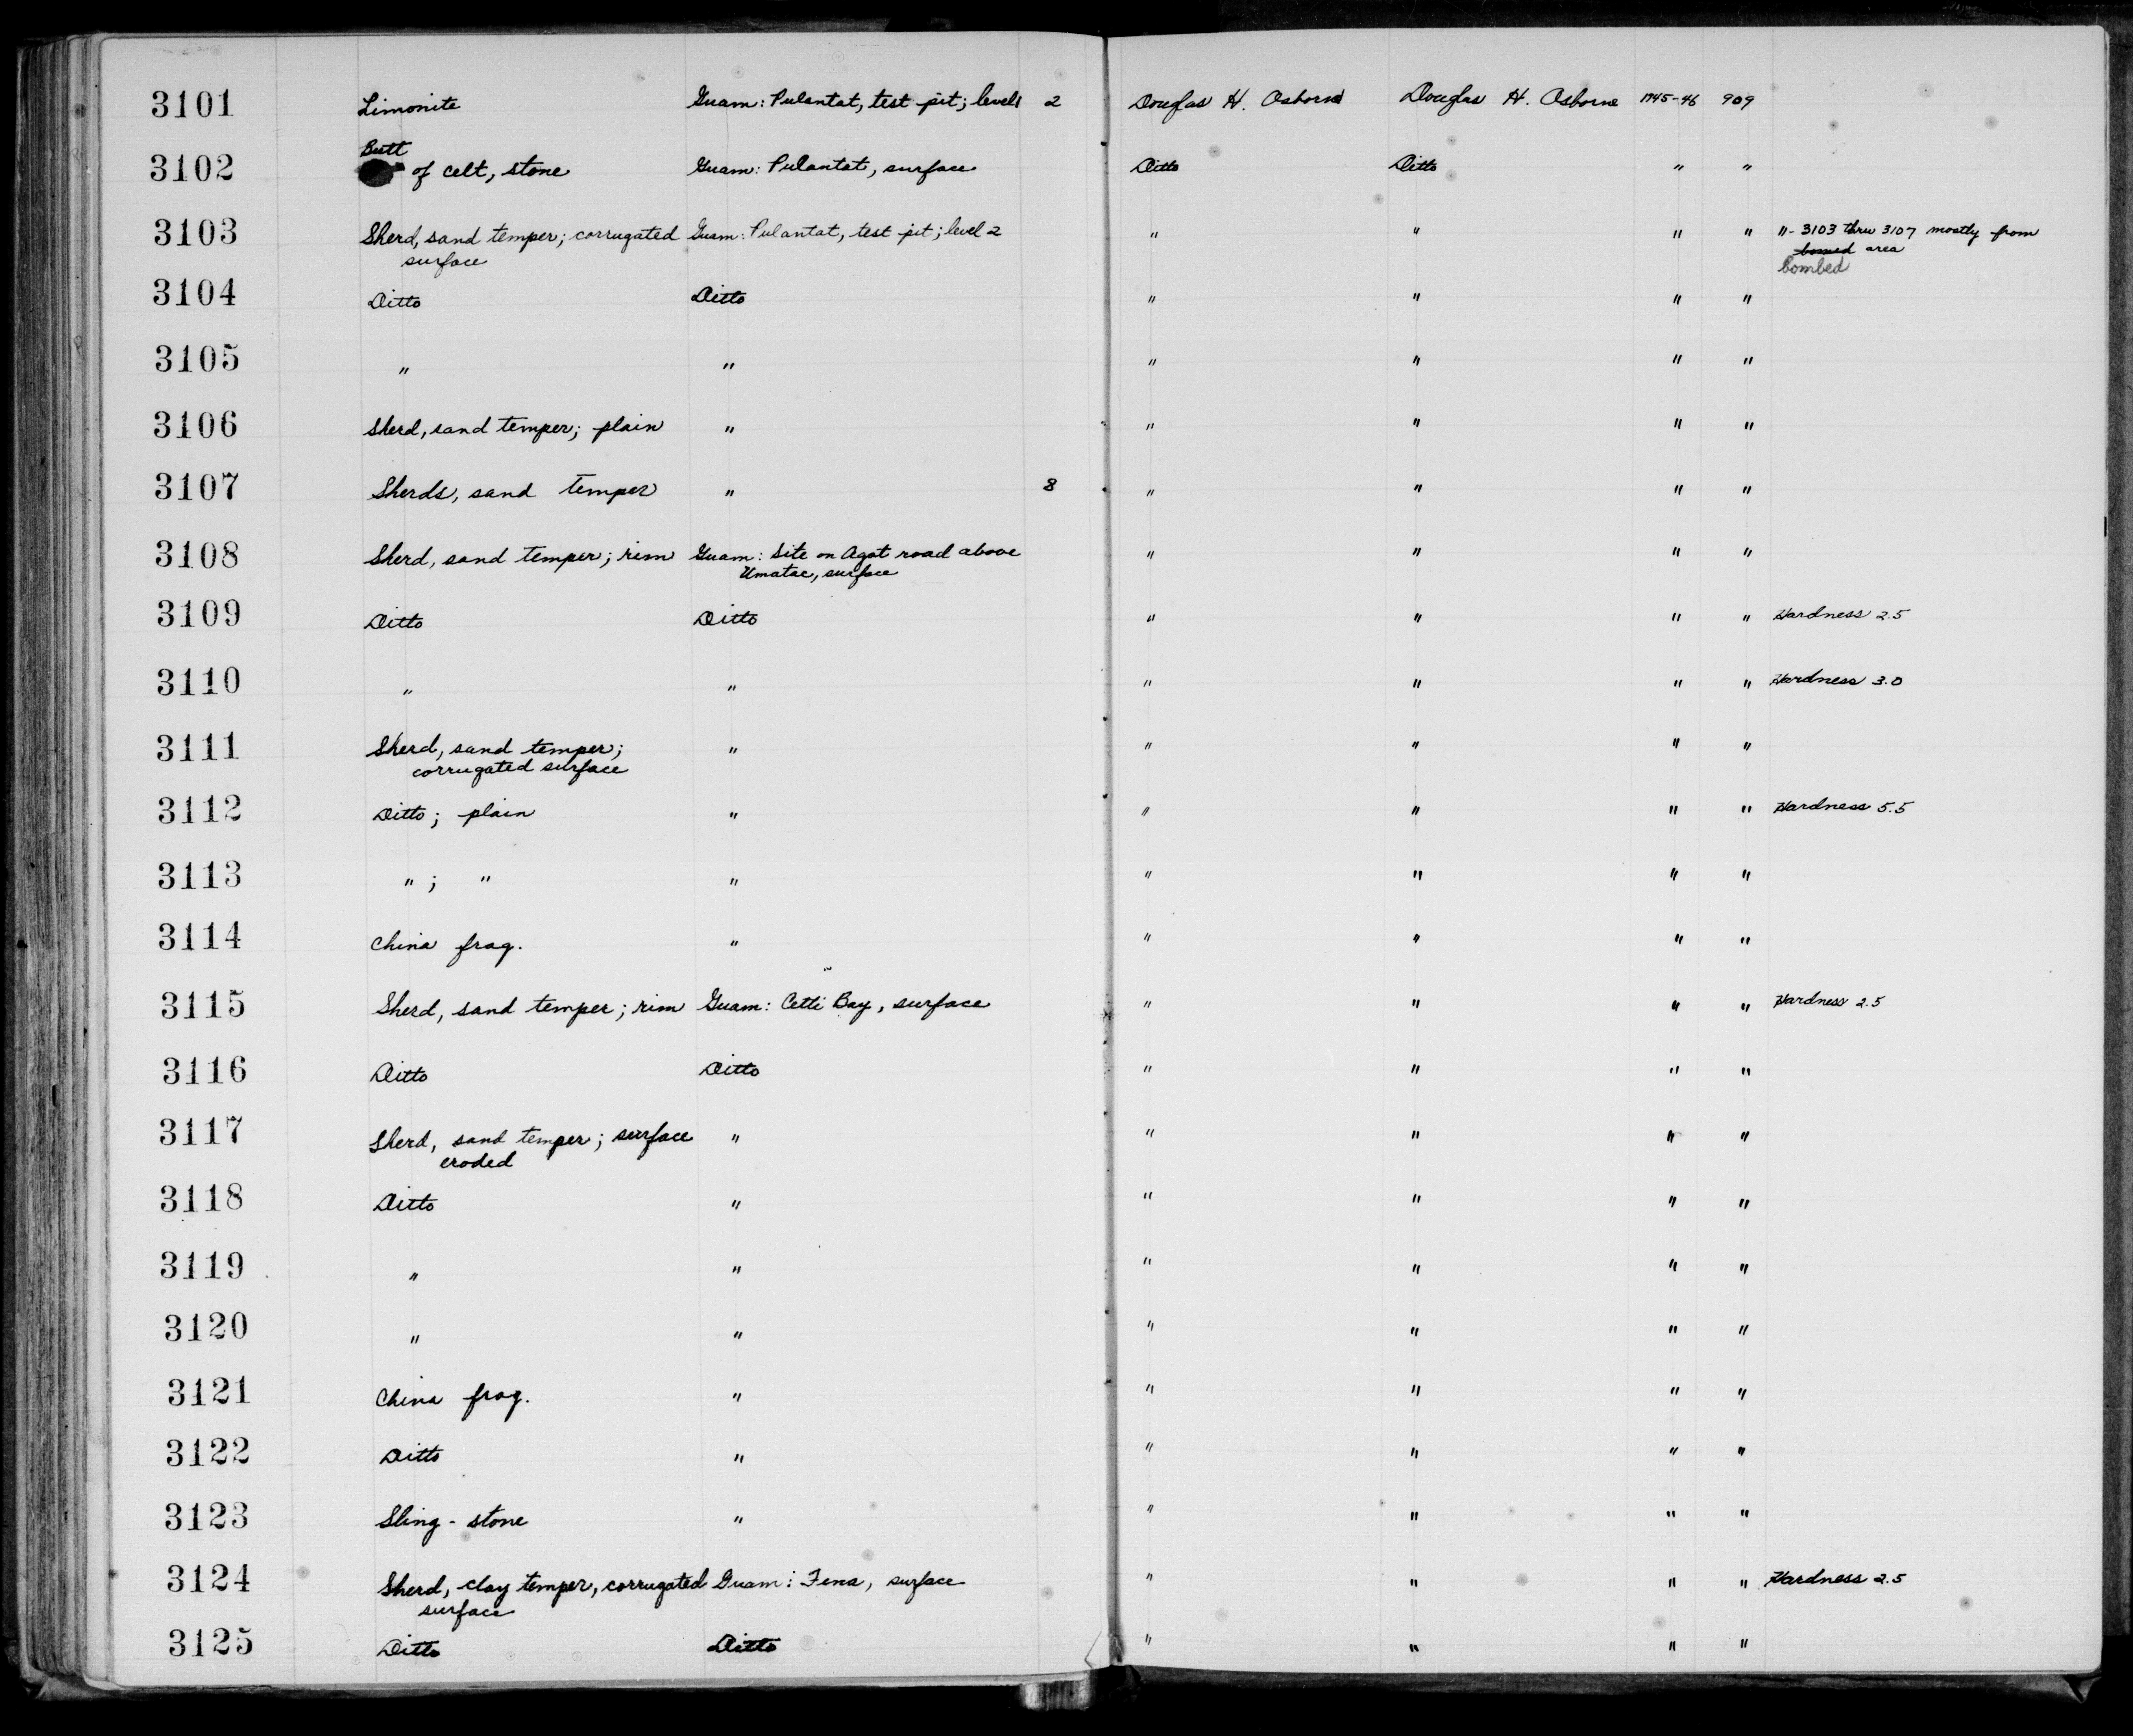 3101 Limonite Guam: Pulantat, test pit; level 1 2 Douglas H. Osborne Douglas H. Osborne 1945-46 909
Butt
3102 of celt, stone Guam: Pulantat, surface Ditto Ditto " "
3103 Sherd, sand temper; corrugated Guam: Pulantat, test pit; level 2 " " " " "- 3103 thru 3107 mostly from
surface bomed area
bombed
3104 Ditto Ditto " " " "
3105 " " " " " "
3106 Sherd, sand temper; plain " " " " "
3107 Sherds, sand temper " 8 " " " "
3108 Sherd, sand temper; rim Guam: Site on Agat road above " " " "
Umatac, surface
3109 Ditto Ditto " " " " Hardness 2.5
3110 " " " " " " Hardness 3.0
3111 Sherd, sand temper; " " " " "
corrugated surface
3112 Ditto; plain " " " " " Hardness 5.5
3113 " ; " " " " " "
3114 China frag. " " " " "
3115 Sherd, sand temper; rim Guam: Cetti Bay, surface " " " " Hardness 2.5
3116 Ditto Ditto " " " "
3117 Sherd, sand temper; surface " " " " "
eroded
3118 Ditto " " " " "
3119 " " " " " "
3120 " " " " " "
3121 China frag. " " " " "
3122 Ditto " " " " "
3123 Sling-stone " " " " "
3124 Sherd, clay temper, corrugated Guam: Fena, surface " " " " Hardness 2.5
surface
3125 Ditto Ditto " " " "